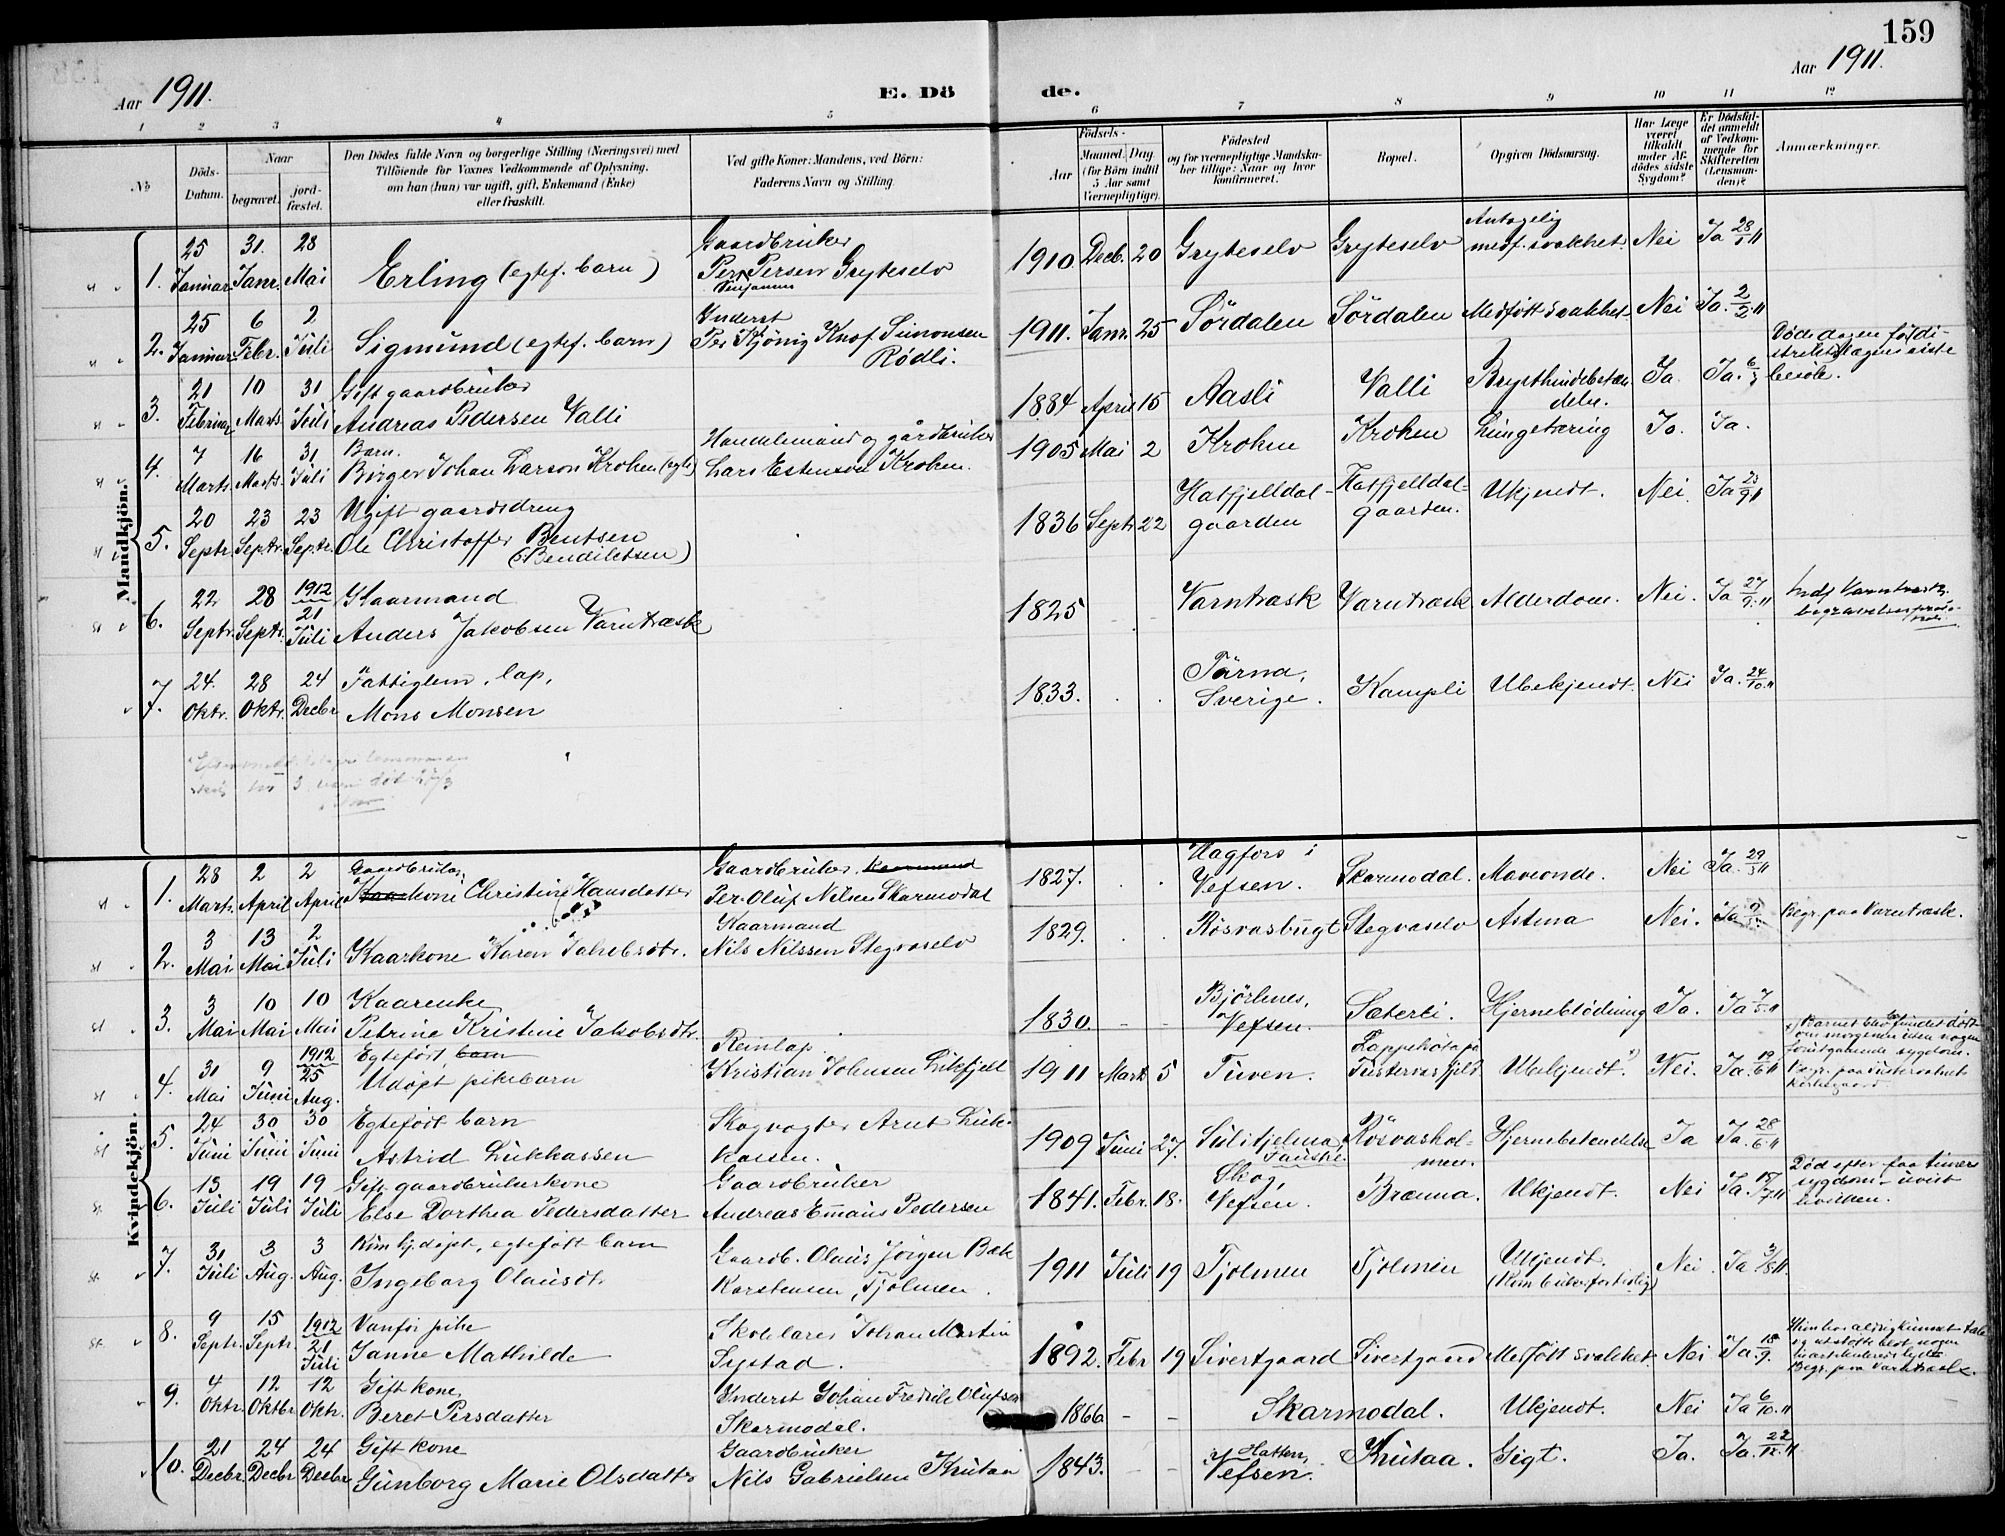 159
Aar 1911.
E. Dö de.
Aar 1911.
1 2 3 4 5 6 7 8 9 10 11 12
No
Döds-Datum.
Naar
begravet.
jord-fæstet.
Den Dödes fulde Navn og borgerlige Stilling (Næringsvei) med
Tilföiende for Voxnes Vedkommende af Oplysning,
om han (hun) var ugift, gift, Enkemand (Enke)
eller fraskilt.
Ved gifte Koner: Mandens, ved Börn:
Faderens Navn og Stilling.
Födsels-
Aar
Maaned. Dag
(for Börn indtil
5 Aar samt
Værnepligtige).
Födested
og for værnepligtige Mandska-
ber tillige: Naar og hvor
konfirmeret.
Bopæl.
Opgiven Dödsaarsag.
Har Læge
været
tilkaldt
under Af-
dödes sidste
Sygdom?
Er Dödsfal-
det anmeldt
af Vedkom-
mende for
Skifteretten
(Lensman-
den)?
Anmærkninger.
Mandkjön.
1. 25 Januar 31. Janr. 28 Mai Erling (egtef. barn) Gaardbruker Per Benjamin Persen Gryteselv 1910 Decb. 20 Gryteselv Gryteselv Antagelig medf. svakhet Nei Ja 28/1 11
2. 25 Januar 6 Febr. 2 Juli Sigmund (egtef. barn) Inderst Per Kjönig Knof Simonsen Rödli. 1911. Janr. 25 Sördalen Sördalen Medfött svakhet Nei Ja. 2/2 11
3. 21 Februar 10 Marts. 31 Juli Gift gaardbruker Andreas Pedersen Valli 1884 April 15 Aasli Valli Brysthindebetændelse. Ja. Ja. 6/3
4. 7 Marts. 16 Marts. 31 Juli Barn. Birger Johan Larson Krohen (egte) Handelsmand og gårdbruker Lars Estenson Krohen. 1905 Mai 2 Krohen Krohen Lungetæring Ja. Ja.
5. 20 Septr. 23 Septr. 23 Septr. Ugift gaardsdreng Ole Christoffer Bentsen (Bendiktsen) 1836 Septr. 22 Hatfjelldalgaarden Hatfjelldalgaarden. Ukjendt. Nei. Ja 23/9 11
6. 22 Septr. 28 Septr. 1912 21 Juli Kaarmand Anders Jakobsen Varntræsk 1825 Varntræsk Varntræsk Alderdom. Nei. Ja 27/9 11
7. 24. Oktr. 28 Oktr. 24 Decbr. Fattiglem, lap, Mons Monsen 1833. Tärna, Sverige. Kampli Ubekjendt. Nei Ja. 24/10 11
Kvindekjön.
1. 28 Marts. 2 April 2 April Gaardbruker kone Christine Hansdatter Gaardbruker, Kaarmand Per Oluf Nilsen Skarmodal 1827. Hagfors i Vefsen. Skarmodal. Maveonde. Nei Ja. 29/3 11
2. 3 Mai 13 Mai 2 Juli Kaarkone Karen Jakobsdtr. Kaarmand Nils Nilssen Stegvaselv 1829. Rösvasbugt Stegvaselv Astma Nei. Ja Begr. paa Varntræsk.
3. 3 Mai 10 Mai 10 Mai Kaarenke Petrine Kristine Jakobsdtr. 1830. Vefsen. Sæterli. Hjerneblödning Ja. Ja 7/5 11
4. 31 Mai 9 Juni 1912 25 Aug. Egtefödt barn Udöpt pikebarn Reinlap. Kristian Johnsen Likfjell 1911 Marts 5 Tuven. Ubekjendt. Nei. Ja. 19/6 11
Barnet blev funnet död om morgenen uten nogen forutgaaende sygdom.
5. 24 Juni 30 Juni 30 Juni Egtefödt barn Astrid Lukkassen Skogvogter Arnt Lukkassen. 1909 Juni 27. Sulitjelma, Fauske. Rösvasholmen. Hjernebetændelse Ja Ja. 28/6 11
6. 13 Juli 19 Juli 19 Juli Gift gaardbrukerkone Else Dorthea Pedersdatter Gaardbruker Andreas Emaus Pedersen 1841. Febr. 18. Skog, Vefsen. Brænna. Ukjendt. Nei Ja. 15/7 11 Död efter faa timers sygdom – uvist hvilken.
7. 31 Juli 3 Aug. 3 Aug. Kun hj. döpt, egtefött barn Ingeborg Olausdt. Gaardb. Olaus Jörgen Bæk Karstensen, Tjolmen. 1911 Juli 19 Tjolmen Tjolmen Ukjendt. Nei. Ja 3/8 11.
8. 9 Septr. 15 Septr. 1912 21 Juli Vanför pike Janne Mathilde Skolelærer Johan Martin Systad. 1892. Febr 19 Sivertgaard Sivertgaard Medfött svakhet Nei Ja 18/9. Hun har aldrig kunnet tale
Begr. paa Varntræsk.
9. 4 Oktr. 12 Oktbr 12 Oktr. Gift kone, Beret Persdatter Inderst Johan Fredrik Olufsen Skarmodal. 1866 Skarmodal. Ukjendt. Nei Ja 6/10. 11
10. 21 Decbr. 24 Decbr 24 Decbr Gift kone Gunborg Marie Olsdatter Gaardbruker Nils Gabrielsen Krutaa 1843. Hatten, Vefsen. Krutaa. Gigt. Ja. Ja. 22/12. 11